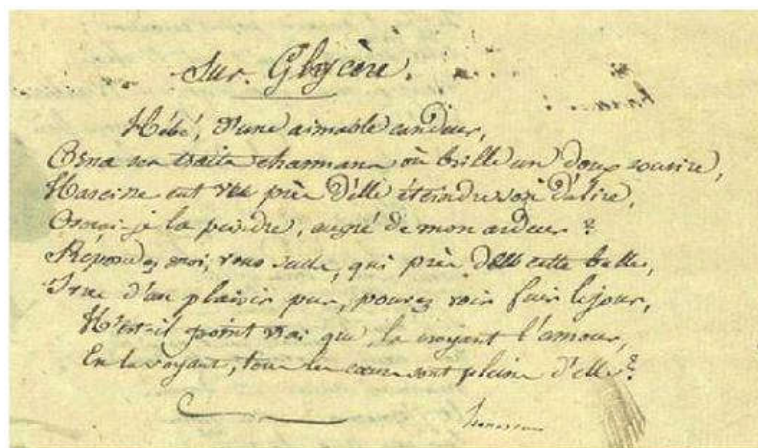 Sur Glycère.
Hébé, d'une aimable candeur,
Orna ses traits charmans où brille un doux sourire,
Narcisse eut vu près d'elle éteindre son délire,
Oserai-je la peindre, au gré de mon ardeur ?
Répondez moi, vous seuls, qui près de cette belle,
Ivre d'un plaisir pur, pouvez voir fuir le jour,
N'est-il point vrai que la croyant l'amour,
En la voyant, tous les cœurs sont pleins d'elle ?